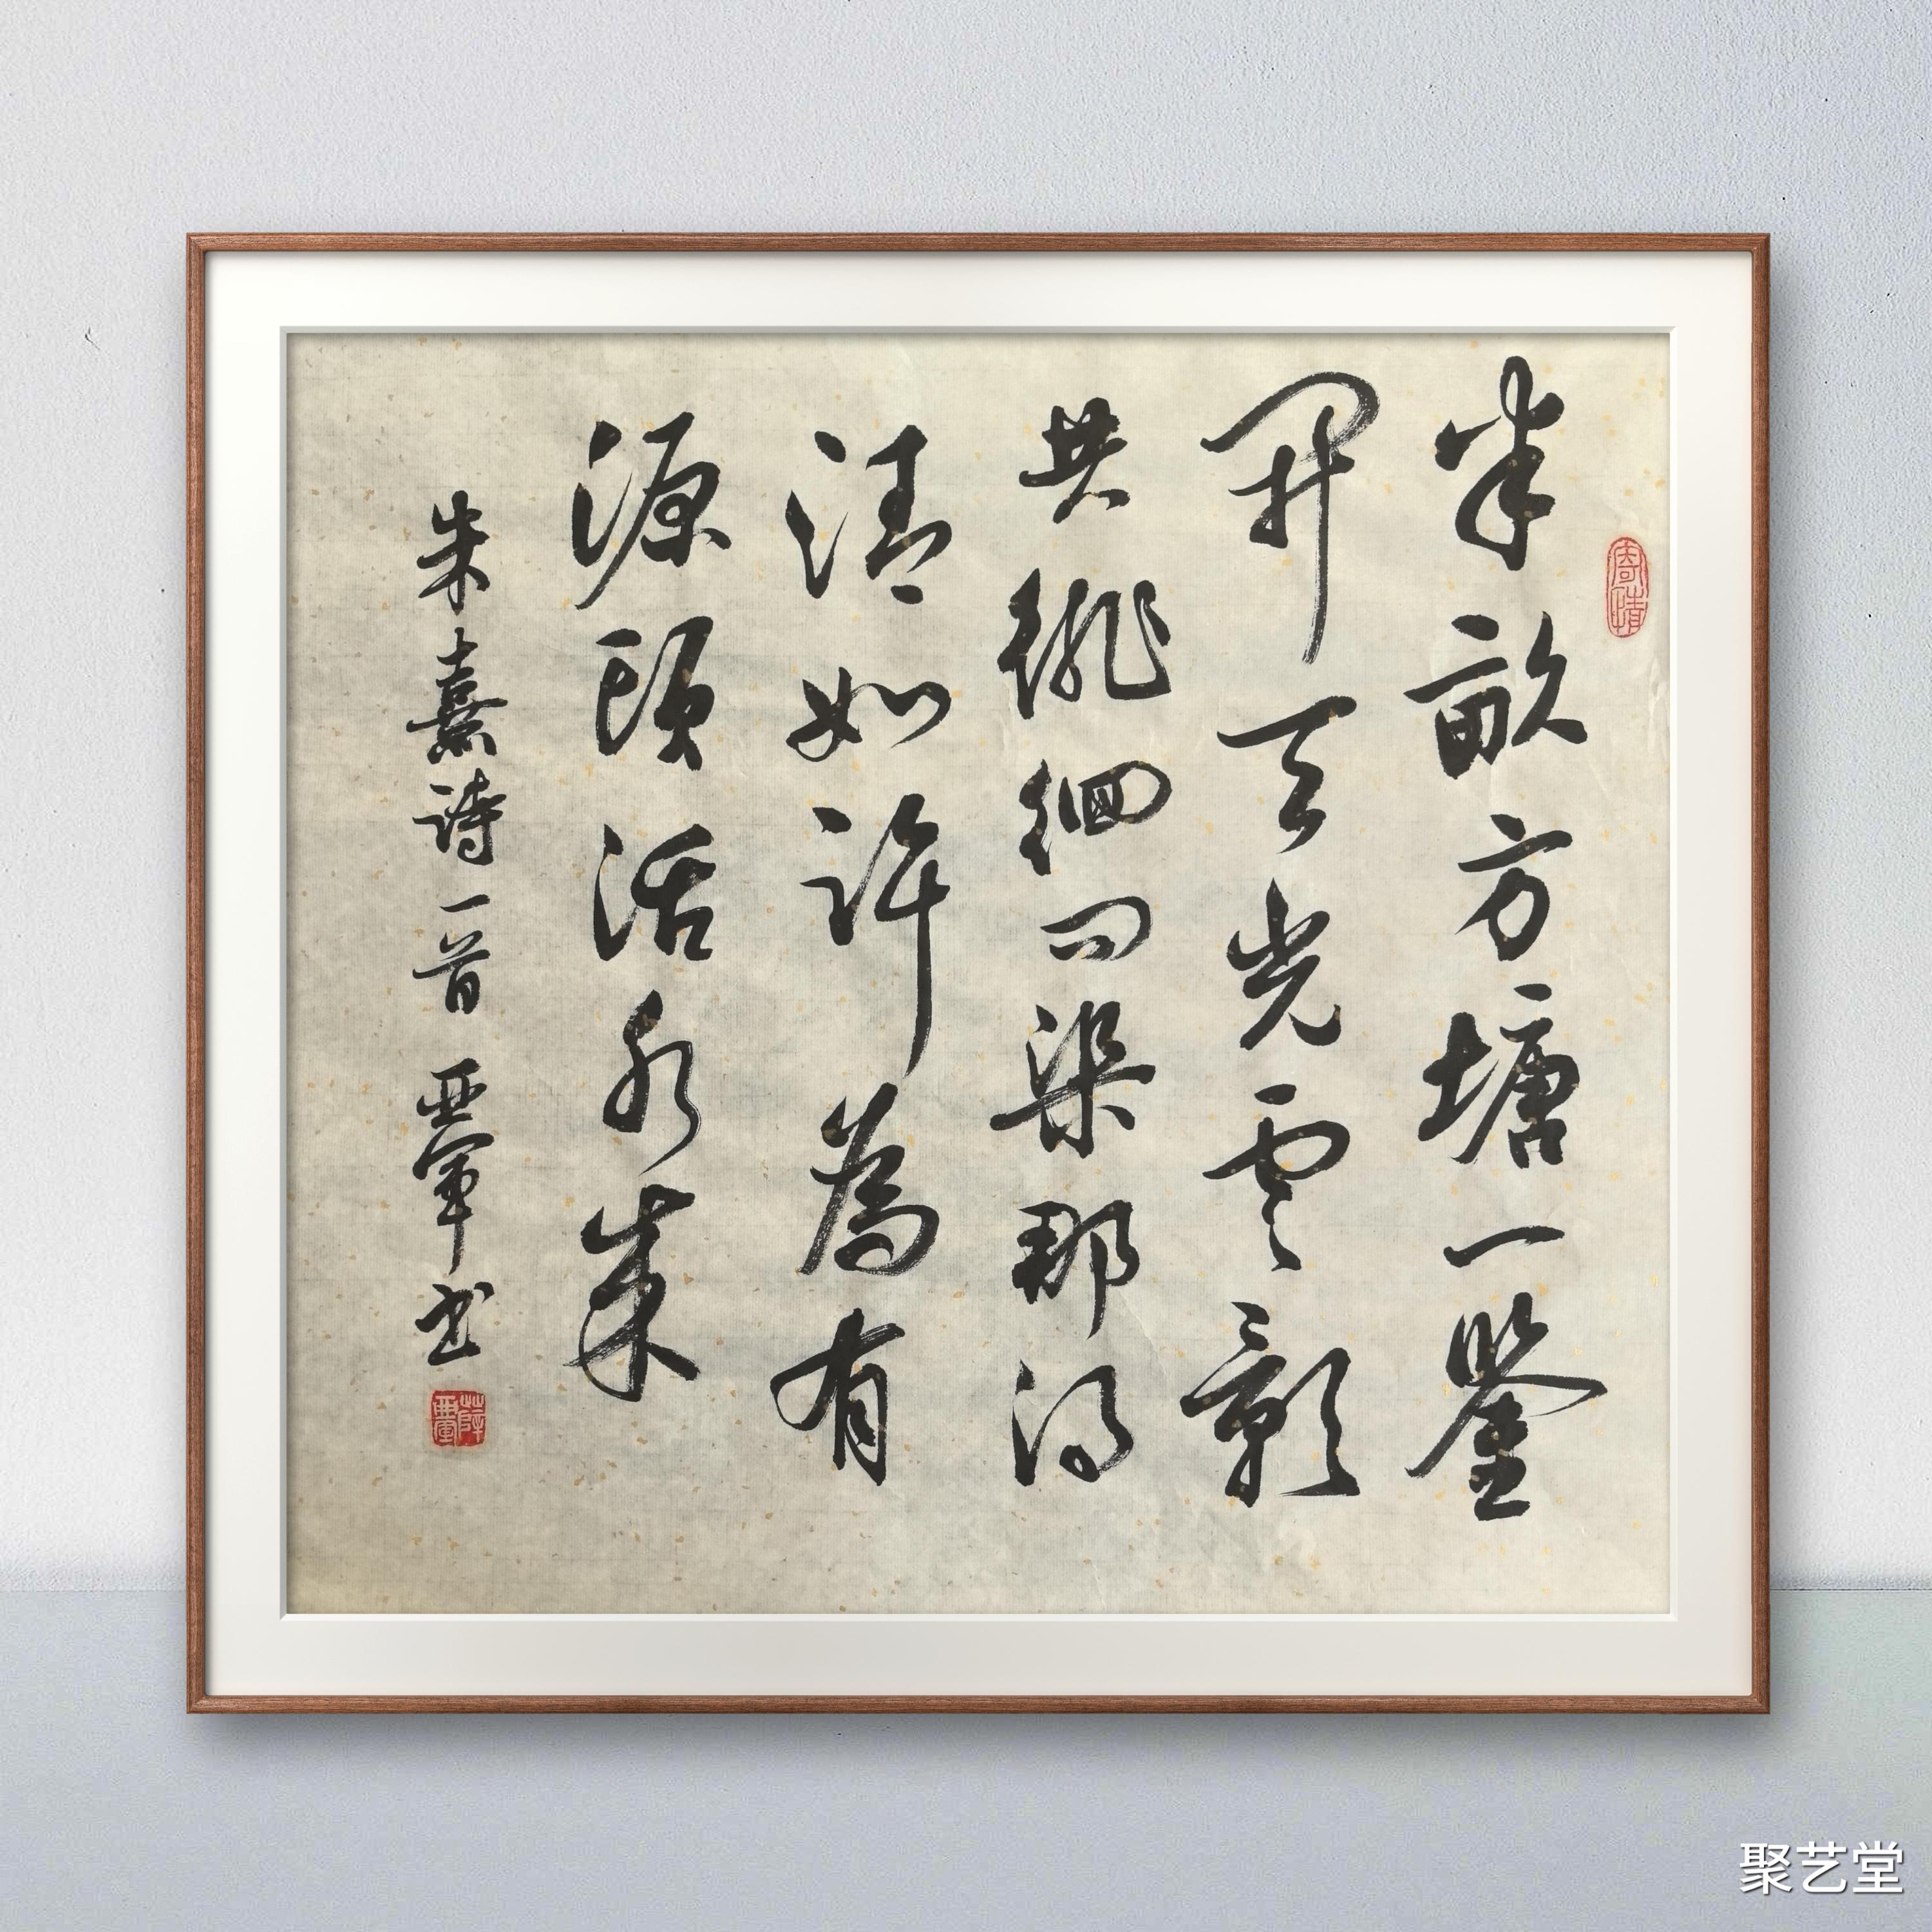 寄情
半畝方塘一鑒
開天光雲影
共徘徊問渠那得
清如許為有
源頭活水來
朱熹詩一首 亞軍书
聚艺堂